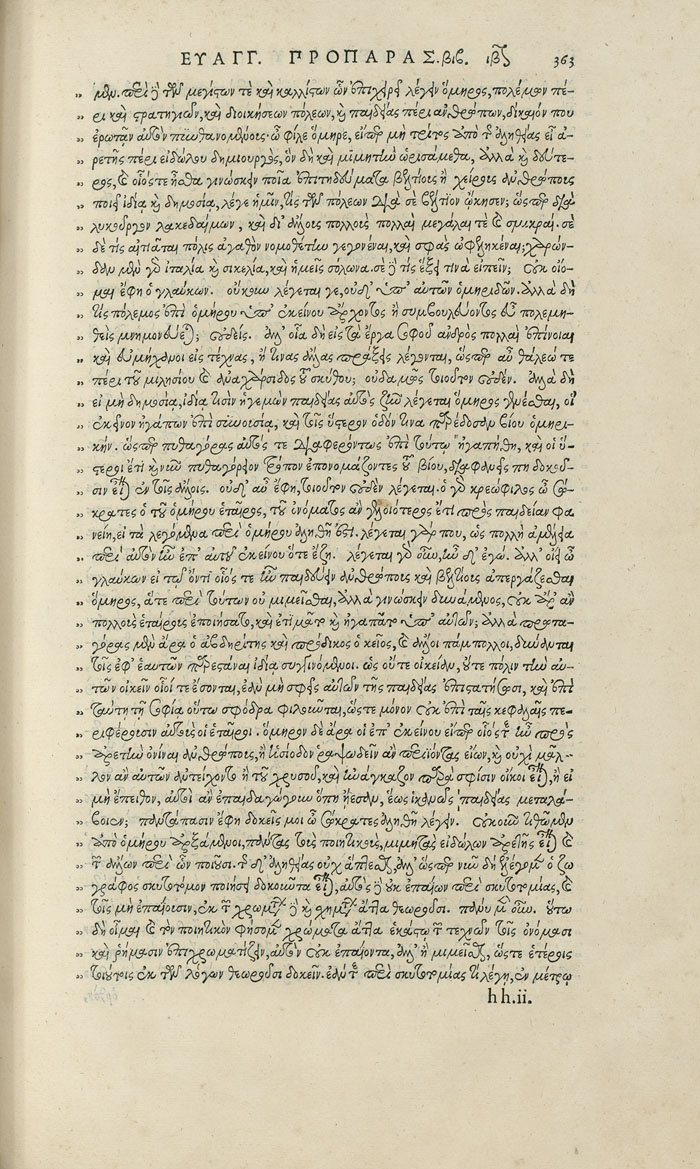 ΕΥΑΓΓ. ΠΡΟΠΑΡΑΣ.βιβ. ιβ 363
„ μδυ. περὶ ἢ τῶν μεγίςων τε καὶ καλλίςων ὧν ἐπιχειρεῖ λέγειν ὅμηρος, πολέμων πέ-
„ ρι καὶ ςρατηγιῶν, καὶ διοικήσεων πόλεων, καὶ παιδείας πέρι ἀνθρώπου, δίκαιόν που
„ ἐρωτᾷν αὐτὸν πυνθανομένοις· ὦ φίλε ὅμηρε, εἴπερ μὴ τρίτος ἀπὸ τῆς ἀληθείας εἶ ἀ-
„ ρετῆς πέρι εἰδώλου δημιουργὸς, ὃν δὴ καὶ μιμητὴν ὡρισάμεθα, ἀλλὰ καὶ δεύτε-
„ ρος, καὶ οἷός τε ἦσθα γινώσκειν ποῖα ἐπιτηδεύματα βελτίους ἢ χείρους ἀνθρώπους
„ ποιεῖ ἰδίᾳ καὶ δημοσίᾳ, λέγε ἡμῖν, τίς τῶν πόλεων διὰ σὲ βέλτιον ᾤκησεν; ὥσπερ διὰ
„ λυκοῦργον λακεδαίμων, καὶ δι' ἄλλους πολλοὺς πολλαὶ μεγάλαι τε καὶ σμικραί. σὲ
„ δὲ τίς αἰτιᾶται πόλις ἀγαθὸν νομοθέτην γεγονέναι, καὶ σφᾶς ὠφεληκέναι; χαρών-
„ δαν μὲν γὰρ ἰταλία καὶ σικελία, καὶ ἡμεῖς σόλωνα. σὲ δὲ τίς; ἕξει τινὰ εἰπεῖν; οὐκ οἶο-
„ μαι ἔφη ὁ γλαύκων. οὔκουν λέγεταί γε, οὐδ' ὑπ' αὐτῶν ὁμηριδῶν. ἀλλὰ δὴ
„ τίς πόλεμος ἐπὶ ὁμήρου ὑπ' ἐκείνου ἄρχοντος ἢ συμβουλεύοντος εὖ πολεμη-
„ θεὶς μνημονεύεται; οὐδείς. ἀλλ' οἷα δὴ εἰς τὰ ἔργα σοφοῦ ἀνδρὸς πολλαὶ ἐπίνοιαι
„ καὶ εὐμήχανοι εἰς τέχνας, ἤ τινας ἄλλας πράξεις λέγονται, ὥσπερ αὖ θάλεώ τε
„ πέρι τοῦ μιλησίου καὶ ἀναχάρσιδος τοῦ σκύθου; οὐδαμῶς τοιοῦτον οὐδέν. ἀλλὰ δὴ
„ εἰ μὴ δημοσίᾳ, ἰδίᾳ τισὶν ἡγεμὼν παιδείας αὐτὸς ζῶν λέγεται ὅμηρος γενέσθαι, οἳ
„ ἐκεῖνον ἠγάπων ἐπὶ συνουσίᾳ, καὶ τοῖς ὕςερον ὁδόν τινα παρέδοσαν βίου ὁμηρι-
„ κήν. ὥσπερ πυθαγόρας αὐτός τε διαφερόντως ἐπὶ τούτῳ ἠγαπήθη, καὶ οἱ ὕ-
„ ςεροι ἔτι καὶ νῦν πυθαγόρειον τρόπον ἐπονομάζοντες τοῦ βίου, διαφανεῖς πῃ δοκοῦ-
„ σιν εἶναι ἐν τοῖς ἄλλοις. οὐδ' αὖ ἔφη, τοιοῦτον οὐδὲν λέγεται. ὁ γὰρ κρεώφιλος ὦ σώ-
„ κρατες ὁ τοῦ ὁμήρου ἑταῖρος, τοῦ ὀνόματος ἂν γελοιότερος ἔτι πρὸς παιδείαν φα
„ νείη, εἰ τὰ λεγόμενα περὶ ὁμήρου ἀληθῆ ἐςί. λέγεται γάρ που, ὡς πολλὴ ἀμέλεια
„ περὶ αὐτὸν ἦν ἐπ' αὐτοῦ ἐκείνου ὅτε ἔζη. λέγεται γὰρ οὖν, ἦν δ' ἐγώ. ἀλλ' οἴει ὦ
„ γλαύκων εἰ τῷ ὄντι οἷός τε ἦν παιδεύειν ἀνθρώπους καὶ βελτίους ἀπεργάζεσθαι
„ ὅμηρος, ἅτε περὶ τούτων οὐ μιμεῖσθαι, ἀλλὰ γινώσκειν δυνάμενος, οὐκ ἄρ' ἂν
„ πολλοὺς ἑταίρους ἐποιήσατο, καὶ ἐτιμᾶτο καὶ ἠγαπᾶτο ὑπ' αὐτῶν; ἀλλὰ πρωτα-
„ γόρας μὲν ἄρα ὁ ἀβδηρίτης καὶ πρόδικος ὁ κεῖος, καὶ ἄλλοι πάμπολλοι, δύνανται
„ τοῖς ἐφ' ἑαυτῶν παρεςάναι ἰδίᾳ συγγινόμενοι. ὡς οὔτε οἰκείαν, οὔτε πόλιν τὴν αὐ-
„ τῶν οἰκεῖν οἷοί τε ἔσονται, ἐὰν μὴ σφεῖς αὐτῶν τῆς παιδείας ἐπιςατήσωσι, καὶ ἐπὶ
„ ταύτῃ τῇ σοφίᾳ οὕτω σφόδρα φιλοῦνται, ὥςτε μόνον οὐκ ἐπὶ ταῖς κεφαλαῖς πε-
„ ριφέρουσιν αὐτοὺς οἱ ἑταῖροι. ὅμηρον δὲ ἄρα οἱ ἐπ' ἐκείνου εἴπερ οἷός τε ἦν πρὸς
„ ἀρετὴν ὀνίναι ἀνθρώπους, ἢ ἡσίοδον ῥαψωδεῖν ἂν περιϊόντας εἴων, καὶ οὐχὶ μᾶλ-
„ λον ἂν αὐτῶν ἀντείχοντο ἢ τοῦ χρυσοῦ, καὶ ἠνάγκαζον παρὰ σφίσιν οἴκοι εἶναι, ἢ εἰ
„ μὴ ἔπειθον, αὐτοὶ ἂν ἐπαιδαγώγουν ὅπῃ ᾔεσαν, ἕως ἱκανῶς παιδείας μεταλά-
„ βοιεν; παντάπασιν ἔφη δοκεῖς μοι ὦ σώκρατες ἀληθῆ λέγειν. οὐκοῦν τιθῶμεν
„ ἀπὸ ὁμήρου ἀρξάμενοι, πάντας τοὺς ποιητικοὺς, μιμητὰς εἰδώλων ἀρετῆς εἶναι καὶ
„ τῶν ἄλλων περὶ ὧν ποιοῦσι. τῆς δ' ἀληθείας οὐχ ἅπτεσθαι, ἀλλ' ὥσπερ νῦν δὴ ἐλέγομεν ὁ ζω
„ γράφος σκυτοτόμον ποιήσει δοκοῦντα εἶναι, αὐτός τε οὐκ ἐπαΐων περὶ σκυτοτομίας, καὶ
„ τοῖς μὴ ἐπαΐουσιν, ἐκ τῶν χρωμάτων δὲ καὶ σχημάτων αὐτὰ θεωροῦσι. πάνυ μὲν οὖν. οὕτω
„ δὴ οἶμαι καὶ τὸν ποιητικὸν φήσομεν χρώματα ἄττα ἑκάςων τῶν τεχνῶν τοῖς ὀνόμασι
„ καὶ ῥήμασιν ἐπιχρωματίζειν, αὐτὸν οὐκ ἐπαΐοντα, ἀλλ' ἢ μιμεῖσθαι, ὥςτε ἑτέροις
„ τοιούτοις ἐκ τῶν λόγων θεωροῦσι δοκεῖν. ἐάν τε περὶ σκυτοτομίας τὶ λέγῃ, ἐν μέτρῳ
hh.ii.